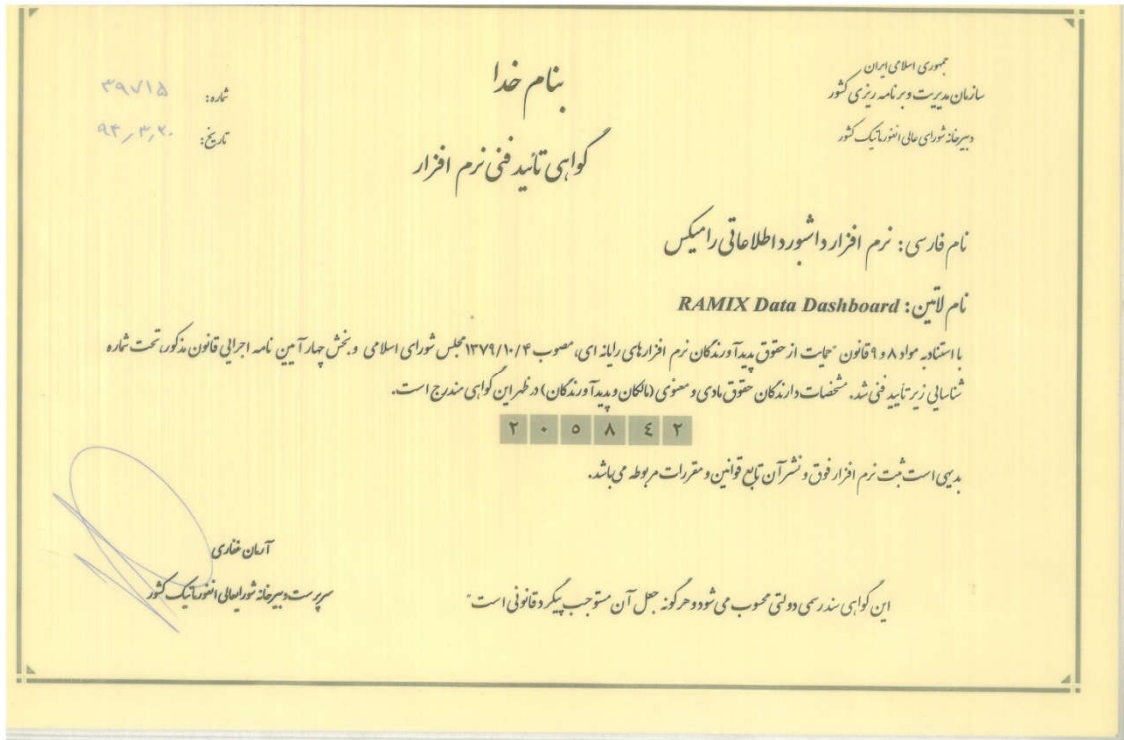 جمهوری اسلامی ایران
سازمان مدیریت و برنامه ریزی کشور
دبیرخانه شورای عالی انفورماتیک کشور
بنام خدا
شماره: ۳۹۷۱۵
تاریخ: ۹۴,۳,۲۰
گواهی تائید فنی نرم افزار
نام فارسی: نرم افزار داشبورد اطلاعاتی رامیکس
نام لاتین: RAMIX Data Dashboard
با استناد به مواد ۸ و ۹ قانون "حمایت از حقوق پدیدآورندگان نرم افزارهای رایانه ای، مصوب ۱۳۷۹/۱۰/۴ مجلس شورای اسلامی و بخش چهار آیین نامه اجرایی قانون مذکور، تحت شماره
شناسایی زیر تأیید فنی شد. مشخصات دارندگان حقوق مادی و معنوی (مالکان و پدیدآورندگان) در ظهر این گواهی مندرج است.
۲ ۰ ۵ ۸ ٤ ۲
بدیهی است ثبت نرم افزار فوق و نشر آن تابع قوانین و مقررات مربوطه می باشد.
آرمان غفاری
سرپرست دبیرخانه شورایعالی انفورماتیک کشور
این گواهی سند رسمی دولتی محسوب می شود و هرگونه جعل آن مستوجب پیگرد قانونی است"